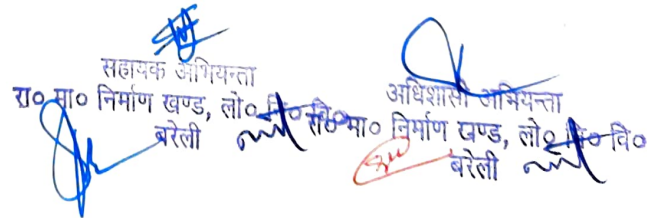 सहायक अभियन्ता
रा० मा० निर्माण खण्ड, लो० नि० वि०
बरेली
अधिशासी अभियन्ता
रा० मा० निर्माण खण्ड, लो० नि० वि०
बरेली